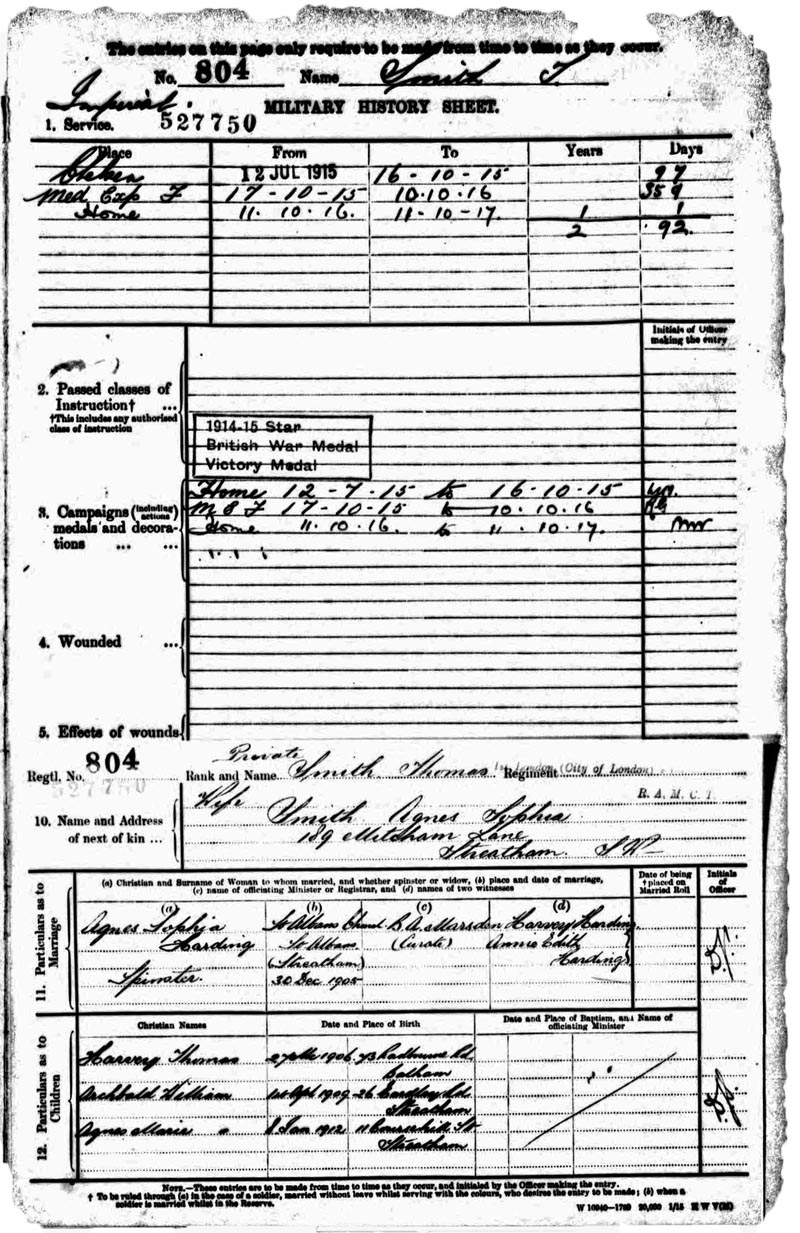 The entries on this page only require to be made from time to time as they occur.
No. 804 Name Smith T.
Imperial.
MILITARY HISTORY SHEET.
1. Service. 527750
Place From To Years Days
12 JUL 1915 16-10-15 97
Med Exp F 17-10-15 10.10.16 359
Home 11.10.16. 11-10-17. 1 1
2 92.
Initials of Officer
making the entry
2. Passed classes of
Instruction† ...
†This includes any authorised
class of instruction
1914-15 Star
British War Medal
Victory Medal
Home 12-7-15 to 16-10-15
3. Campaigns (including actions)
M E F 17-10-15 to 10.10.16
medals and decora-
Home 11.10.16. to 11.10.17.
tions ... ...
4. Wounded ...
5. Effects of wounds
Private
Regtl. No. 804 Rank and Name Smith Thomas Regiment 1st London (City of London)
527750
R.A.M.C.T.
Wife
10. Name and Address
of next of kin ...
Smith Agnes Sophia
189 Mitcham Lane
Streatham SW
11. Particulars as to
Marriage
(a) Christian and Surname of Woman to whom married, and whether spinster or widow, (b) place and date of marriage,
(c) name of officiating Minister or Registrar, and (d) names of two witnesses
Date of being
†placed on
Married Roll
Initials
of
Officer
(a) (b) (c) (d)
Agnes Sophia St Albans Church B.A. Marsden Harvey Harding
Harding St Albans (Curate) Annie Edith
(Streatham) Harding
Spinster. 30 Dec 1905
12. Particulars as to
Children
Christian Names Date and Place of Birth Date and Place of Baptism, and Name of
officiating Minister
Harvey Thomas 1906 73 Rd
Balham
Archbald William Apl 1909 26 Eardley Rd
Streatham
Agnes Marie 8 Jan 1912 11 St
Streatham
NOTE.—These entries are to be made from time to time as they occur, and initialed by the Officer making the entry.
† To be ruled through (a) in the case of a soldier, married without leave whilst serving with the colours, who desires the entry to be made; (b) when a
soldier is married whilst in the Reserve.